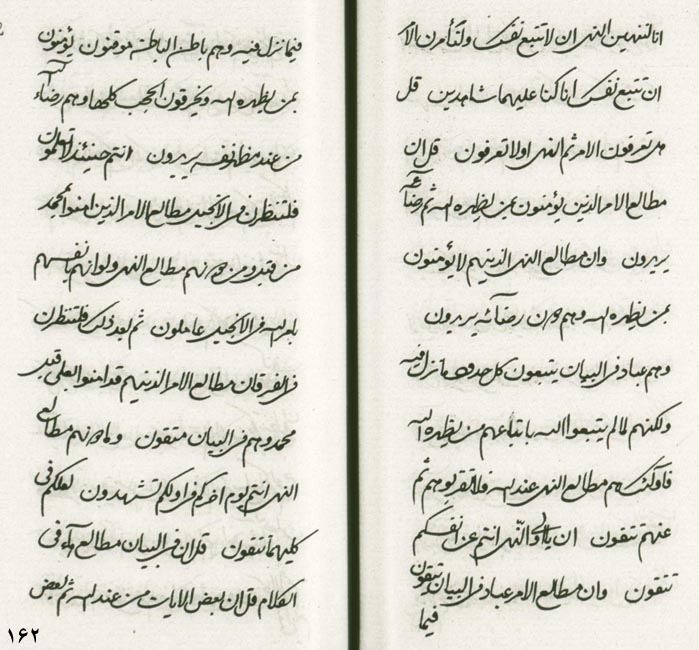 انا لننهين النهي ان لا تتبع نفسك ولتأمرن الامر
ان تتبع نفسك انا كنا عليهما شاهدين قل
هل تعرفون الامر ثم النهي او لا تعرفون قل ان
مطالع الامر الذين يؤمنون بمن يظهره الله ثم رضائه
يريدون وان مطالع النهي الذينهم لا يؤمنون
بمن يظهره الله وهم دون رضائه يريدون
وهم عباد في البيان يتبعون كل حدود ما نزل فيه
ولكنهم لما لم يتبعوا الله باتباعهم من يظهره الله
فاولئك هم مطالع النهي عند الله فلا تقربوهم ثم
عنهم تتقون ان يا اولي النهي انتم عن انفسكم
تتقون وان مطالع الامر عباد في البيان يتقون
فيما
فيما نزل فيه وهم باطن الباطن موقنون يؤمنون
بمن يظهره الله ويخرقون الحجب كلها وهم رضاء الله
من عند مظهر نفسه يريدون انتم حينئذ لا تعلمون
فلتنظرن في الانجيل مطالع الامر الذين امنوا بمحمد
من قبل ومن دونهم مطالع النهي ولو انهم بانفسهم
بامر الله في الانجيل عاملون ثم بعد ذلك فلتنظرن
في الفرقان مطالع الامر الذينهم قد امنوا بعلي قبل
محمد وهم في البيان متقون وما دونهم مطالع
النهي انتم يوم اخركم في اولكم تشهدون لعلكم في
كليهما تتقون قل ان في البيان مطالع هاء في
الكلام قل ان بعض الايات من عند الله ثم بعض
۱۶۲